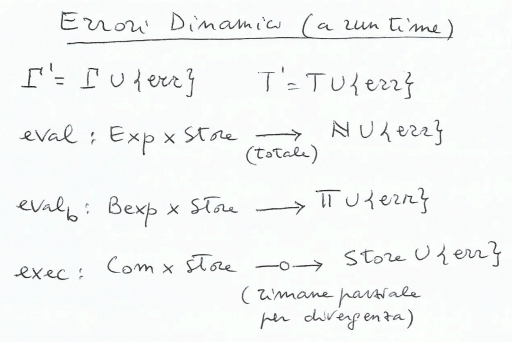 Errori Dinamici (a run time)
Γ' = Γ ∪ {err} T' = T ∪ {err}
eval : Exp x Store ⟶ ℕ ∪ {err}
(totale)
eval_b : Bexp x Store ⟶ 𝕋 ∪ {err}
exec : Com x Store —o→ Store ∪ {err}
(rimane parziale
per divergenza)